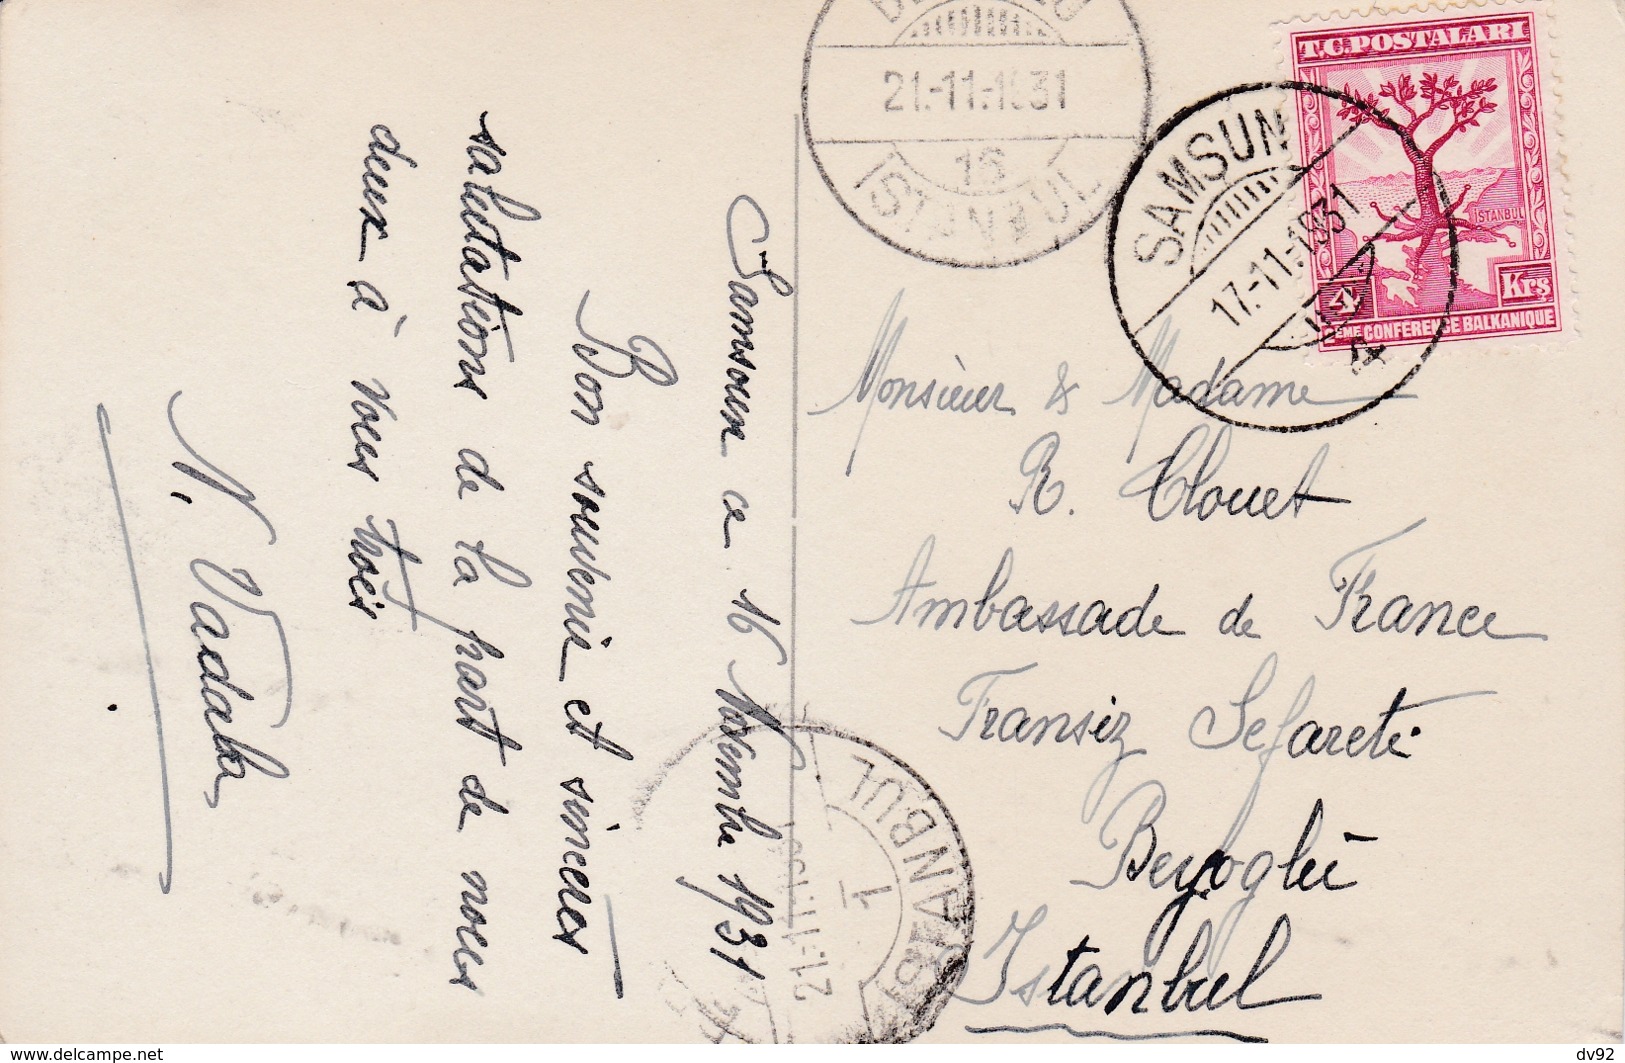 Samsoun ce 16 Novembre 1931
Bon souvenir et sinceres
salutations de la part de nous
deux à vous trois
N. Vadala
BEYOĞLU
21.-11.-1931
16
ISTANBUL
T.C. POSTALARI
İSTANBUL
4 Krş
2ÈME CONFÉRENCE BALKANIQUE
SAMSUN
17.-11.-1931
4
Monsieur & Madame
R. Clouet
Ambassade de France
Fransiz Sefareti
Beyoglu
Istanbul
ISTANBUL
1
21-11-1931
www.delcampe.net
dv92